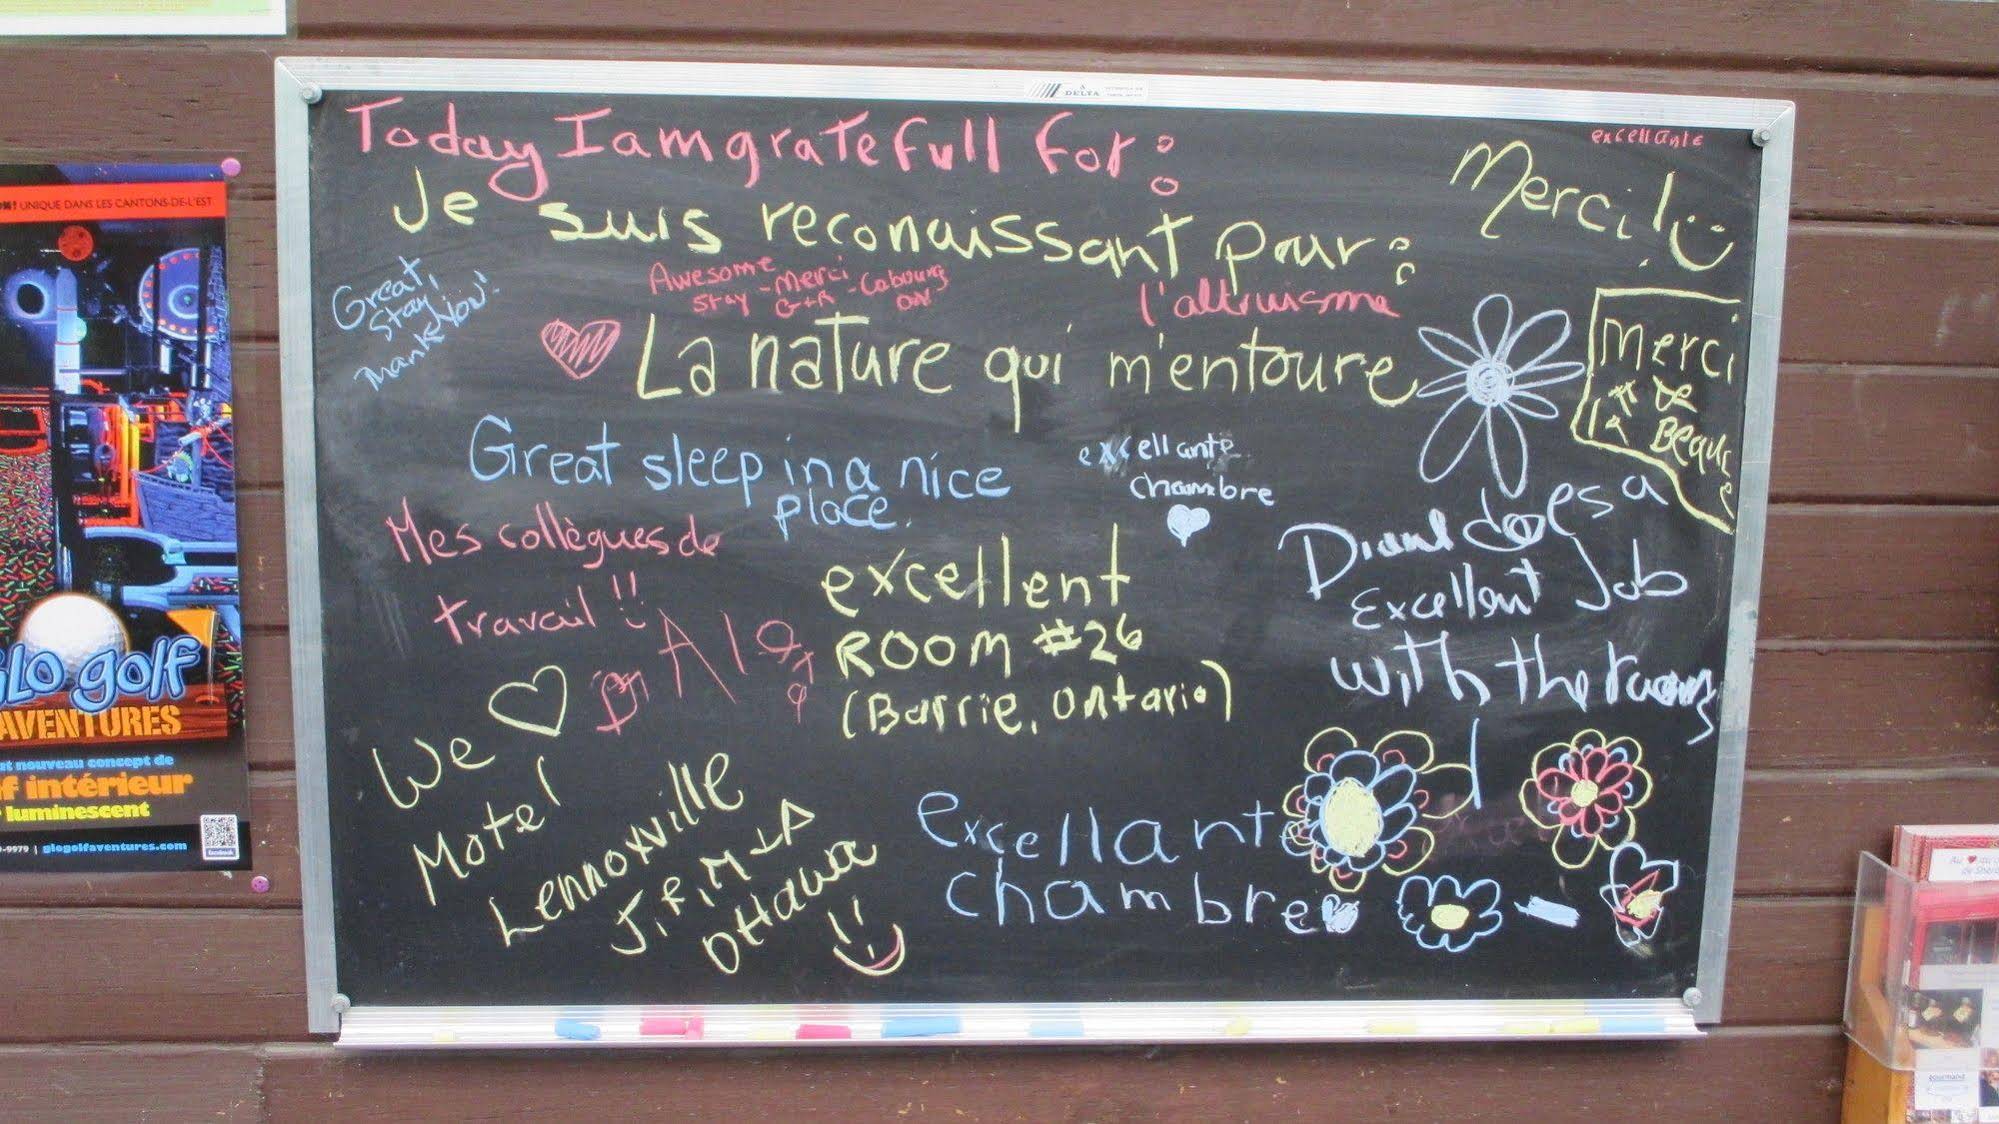 DELTA
Today I am gratefull for:
excellante
Merci!
Je suis reconaissant pour:
Great,
Stay
Thank You!
Awesome
Stay - Merci
G+R - Cobourg
ON
l'altruisme
La nature qui m'entoure
Merci
DE
la Beauce
Great sleep in a nice
place.
excellante
chambre
Mes collègues de
travail !!
excellent
ROOM #26
(Barrie, Ontario)
does a
Excellent Job
with the rooms
We
Motel
Lennoxville
J, R, M + A
Ottawa
Excellant
chambre
UNIQUE DANS LES CANTONS-DE-L'EST
GLO golf
AVENTURES
nouveau concept de
f intérieur
luminescent
-9979 | glogolfaventures.com
facebook
Au
gourmand